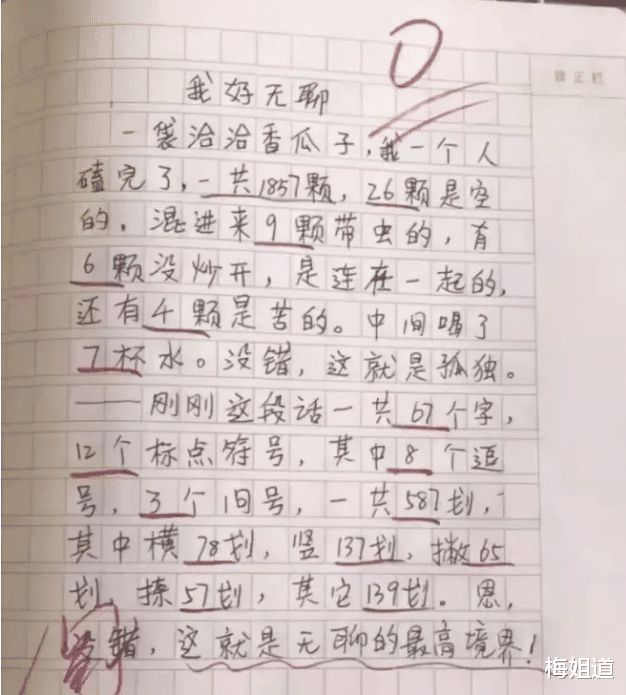 0
修正栏
我好无聊
一袋洽洽香瓜子,我一个人
磕完了,一共1857颗,26颗是空
的,混进来9颗带虫的,有
6颗没炒开,是连在一起的,
还有4颗是苦的。中间喝了
7杯水。没错,这就是孤独。
——刚刚这段话一共67个字,
12个标点符号,其中8个逗
号,3个旧号,一共587划,
其中横78划,竖137划,撇65
划,捺57划,其它139划。恩,
没错,这就是无聊的最高境界!
梅姐道